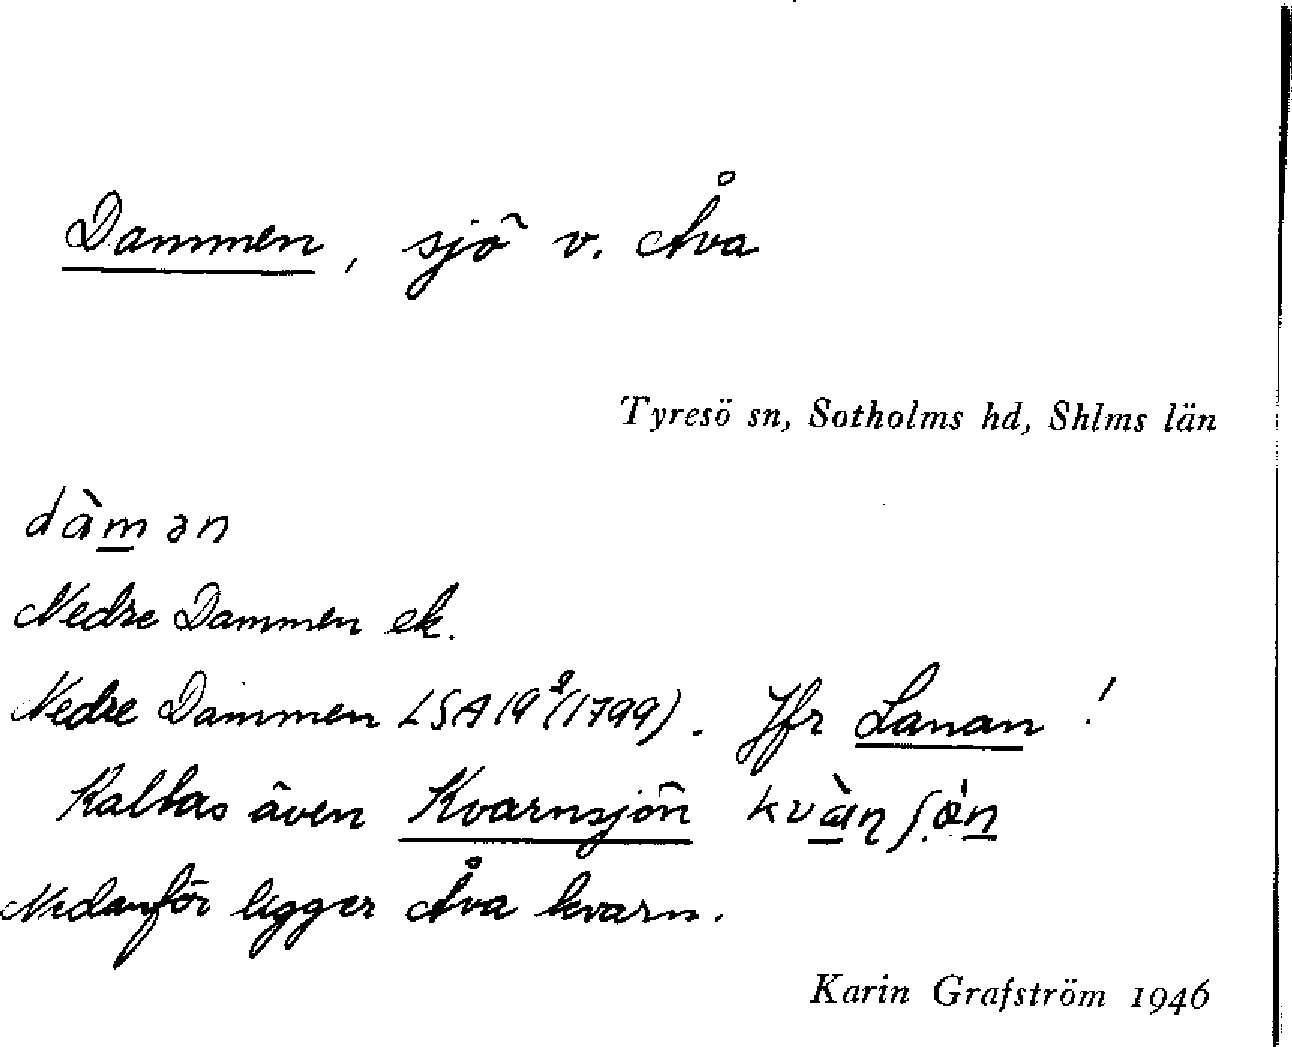 Dammen, sjö v. Åva
Tyresö sn, Sotholms hd, Shlms län
dàmən
Nedre Dammen ek.
Nedre Dammen LSA 19²(1799). Jfr Lanan!
Kallas även Kvarnsjön
Nedanför ligger Åva kvarn.
Karin Grafström 1946